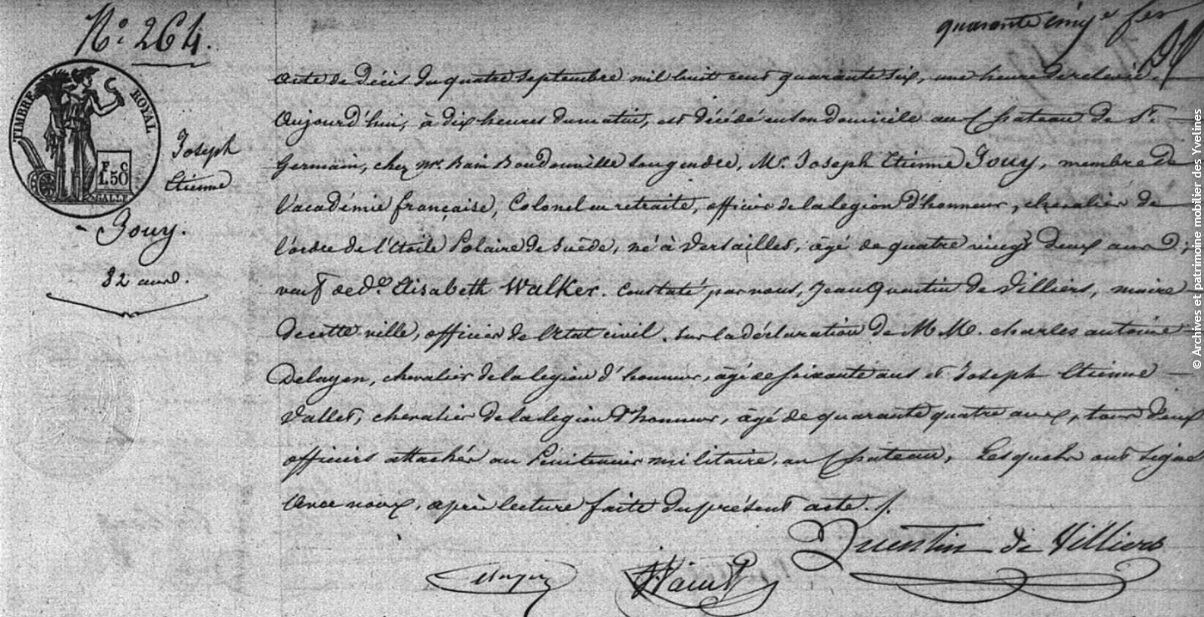 N° 264.
quarante cinq e fer
TIMBRE ROYAL
F. 50
Joseph
Etienne
Jouy.
82 ans.
Acte de Décès du quatre septembre mil huit cent quarante six, une heure de relevée.
Aujourd'hui, à dix heures du matin, est décédé en son domicile au Chateau de St.
Germain, chez Mr. Bain Boudonville son gendre, Mr. Joseph Etienne Jouy, membre de
l'académie française, Colonel en retraite, officier de la légion d'honneur, chevalier de
l'ordre de l'Etoile Polaire de Suède, né à Versailles, âgé de quatre vingt deux ans,
veuf de de. Elisabeth Walker. Constaté par nous, Jean Quentin de Villiers, maire
de cette ville, officier de l'état civil. Sur la déclaration de MM. charles antoine
Delayen, chevalier de la légion d'honneur, âgé de soixante ans et Joseph Etienne
Vallet, chevalier de la légion d'honneur, âgé de quarante quatre ans, tous deux
officiers attachés au Pénitencier militaire, au Chateau, Lesquels ont signé
avec nous, après lecture faite du présent acte.
Quentin de Villiers
© Archives et patrimoine mobilier des Yvelines